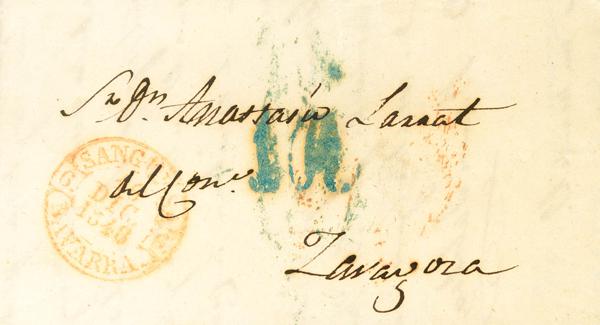 Sr Dn Anastasio Larrat
del Com.o
Zaragoza
SANG
DIC
NAVARRA